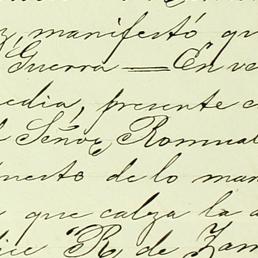 z, manifestó qu
Guerra — En ve
edia, presente e
l Señor, Romual
puesto de lo man
e que calza la a
dice "R. de Zam